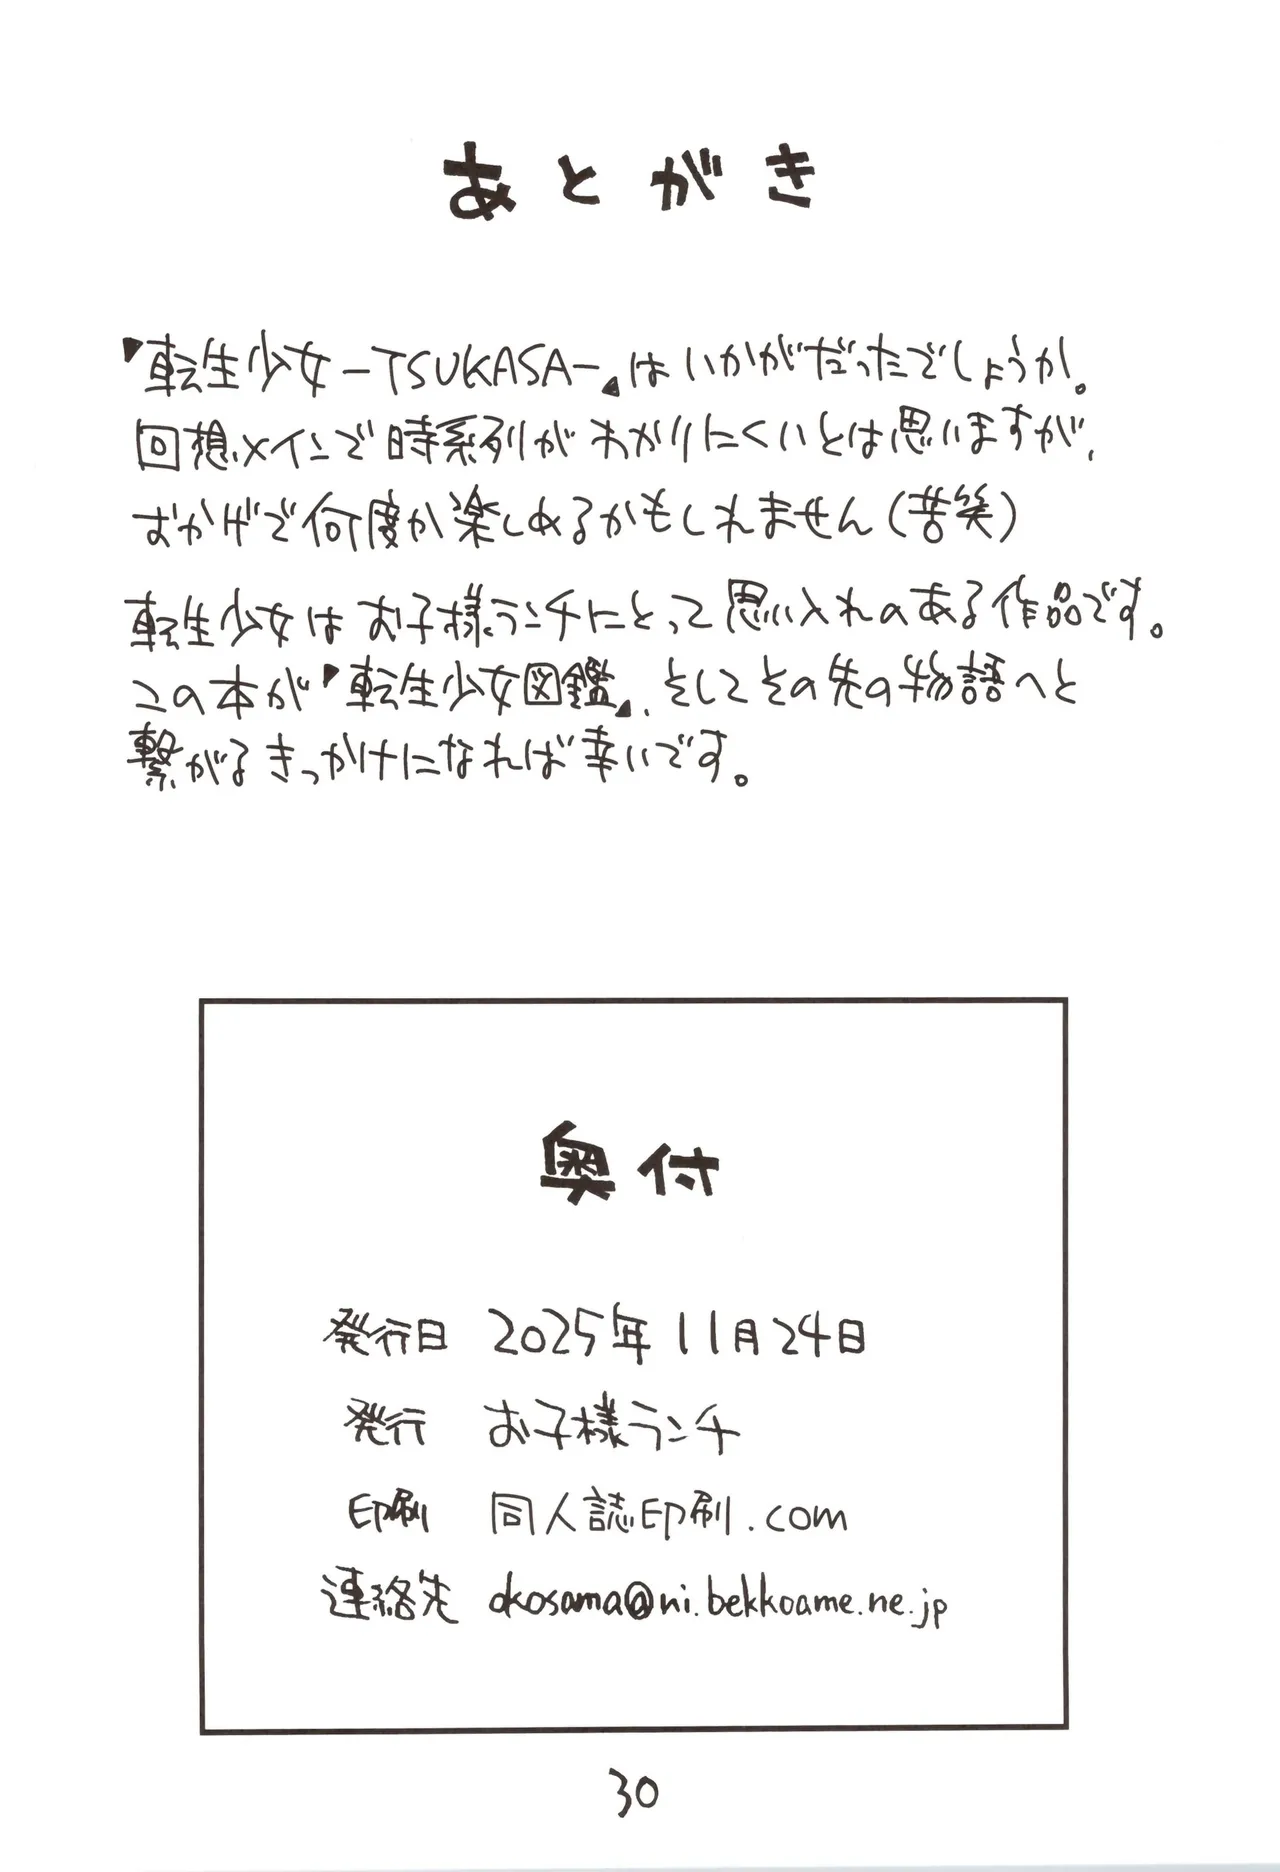 あとがき
『転生少女－TSUKASA－』はいかがだったでしょうか。
回想メインで時系列がわかりにくいとは思いますが、
おかげで何度か楽しめるかもしれません（苦笑）
転生少女はお子様ランチにとって思い入れのある作品です。
この本が『転生少女図鑑』、そしてその先の物語へと
繋がるきっかけになれば幸いです。
奥付
発行日 2025年11月24日
発行 お子様ランチ
印刷 同人誌印刷.com
連絡先 okosama@ni.bekkoame.ne.jp
30